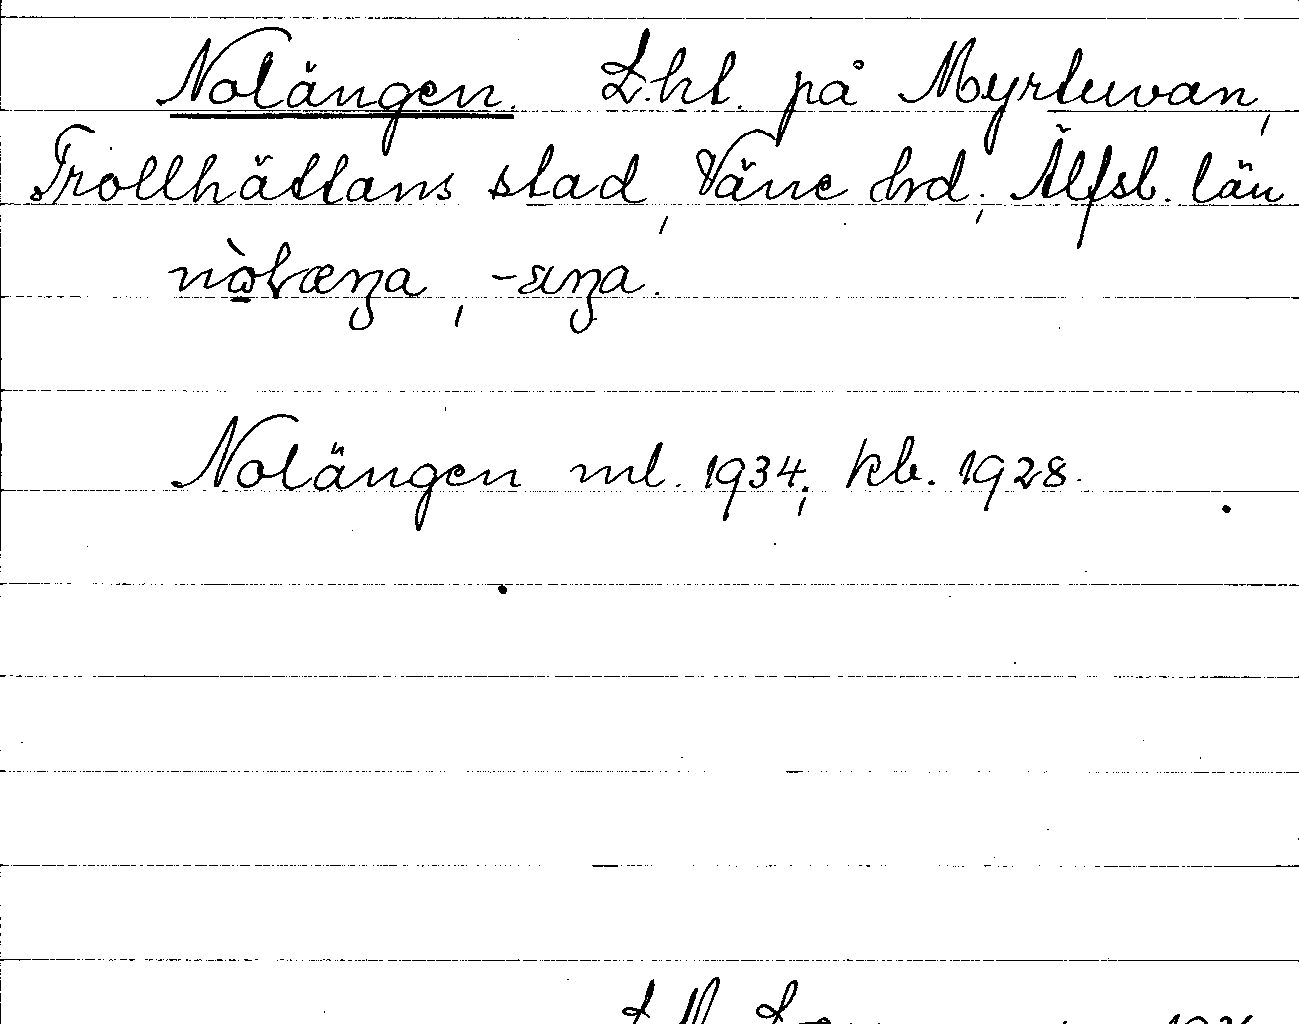 Nolängen. Lht. på Myrtuvan,
Trollhättans stad, Väne hd; Älfsb. län
Nolängen ml. 1934; kb. 1928.